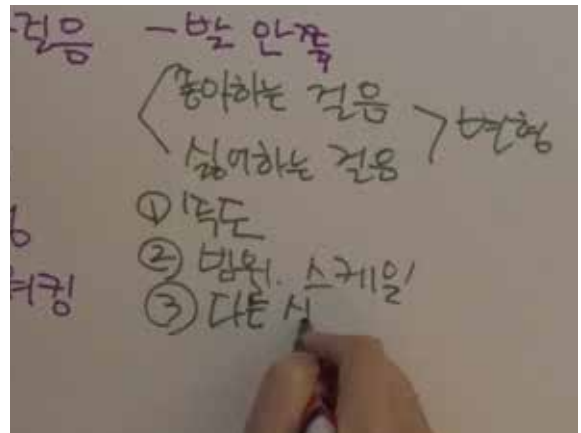 걸음 - 발 안쪽
좋아하는 걸음
싫어하는 걸음 > 변형
① 속도
② 범위. 스케일
워킹 ③ 다른 시